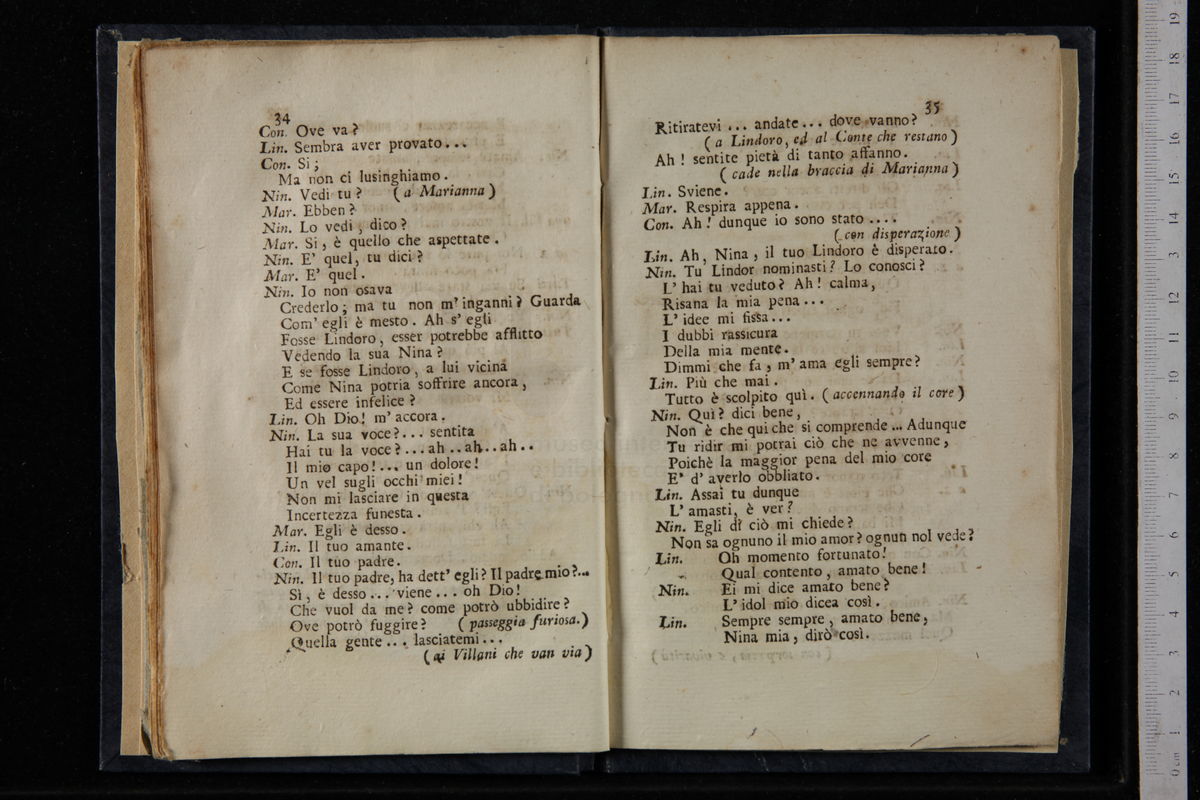 34
Con. Ove va?
Lin. Sembra aver provato...
Con. Si;
Ma non ci lusinghiamo.
Nin. Vedi tu? (a Marianna)
Mar. Ebben?
Nin. Lo vedi, dico?
Mar. Si, è quello che aspettate.
Nin. E' quel, tu dici?
Mar. E' quel.
Nin. Io non osava
Crederlo; ma tu non m'inganni? Guarda
Com' egli è mesto. Ah s' egli
Fosse Lindoro, esser potrebbe afflitto
Vedendo la sua Nina?
E se fosse Lindoro, a lui vicina
Come Nina potria soffrire ancora,
Ed essere infelice?
Lin. Oh Dio! m' accora.
Nin. La sua voce?... sentita
Hai tu la voce?...ah..ah..ah..
Il mio capo!... un dolore!
Un vel sugli occhi miei!
Non mi lasciare in questa
Incertezza funesta.
Mar. Egli è desso.
Lin. Il tuo amante.
Con. Il tuo padre.
Nin. Il tuo padre, ha dett' egli? Il padre mio?...
Sì, è desso... viene... oh Dio!
Che vuol da me? come potrò ubbidire?
Ove potrò fuggire? (passeggia furiosa.)
Quella gente... lasciatemi...
(ai Villani che van via)
35
Ritiratevi... andate... dove vanno?
(a Lindoro, ed al Conte che restano)
Ah! sentite pietà di tanto affanno.
(cade nella braccia di Marianna)
Lin. Sviene.
Mar. Respira appena.
Con. Ah! dunque io sono stato....
(con disperazione)
Lin. Ah, Nina, il tuo Lindoro è disperato.
Nin. Tu Lindor nominasti? Lo conosci?
L' hai tu veduto? Ah! calma,
Risana la mia pena...
L' idee mi fissa...
I dubbi rassicura
Della mia mente.
Dimmi che fa, m' ama egli sempre?
Lin. Più che mai.
Tutto è scolpito quì. (accennando il core)
Nin. Quì? dici bene,
Non è che qui che si comprende... Adunque
Tu ridir mi potrai ciò che ne avvenne,
Poichè la maggior pena del mio core
E' d' averlo obbliato.
Lin. Assai tu dunque
L' amasti, è ver?
Nin. Egli di ciò mi chiede?
Non sa ognuno il mio amor? ognun nol vede?
Lin. Oh momento fortunato!
Qual contento, amato bene!
Nin. Ei mi dice amato bene?
L' idol mio dicea così.
Lin. Sempre sempre, amato bene,
Nina mia, dirò così.